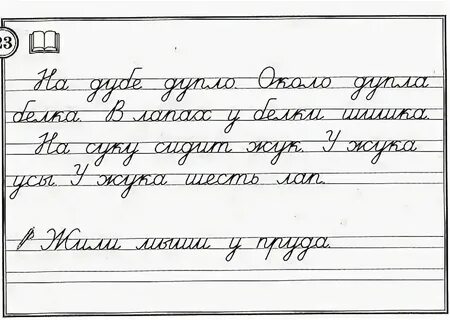 23
На дубе дупло. Около дупла
белка. В лапах у белки шишка.
На суку сидит жук. У жука
усы. У жука шесть лап.
Жили мыши у пруда.